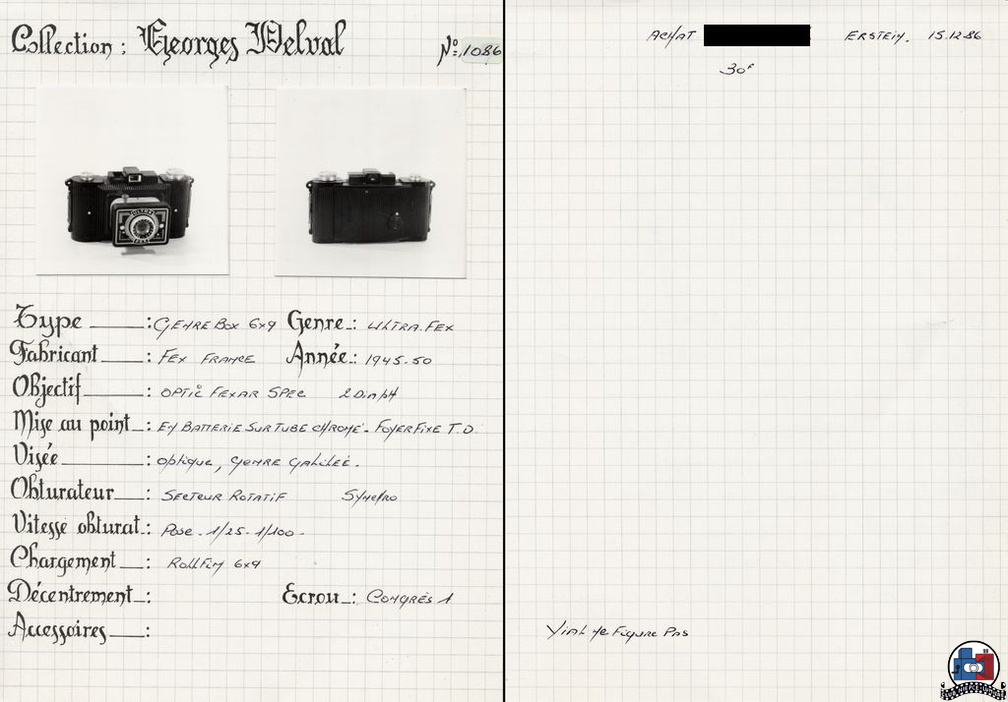 Collection : Georges Delval
N°: 1086
Type : GENRE BOX 6x9 Genre : ULTRA.FEX
Fabricant : FEX FRANCE Année : 1945-50
Objectif : OPTIC FEXAR SPEC
Mise au point : EN BATTERIE SUR TUBE CHROMÉ - FOYER FIXE T.D.
Visée : OPTIQUE, GENRE GALILÉE.
Obturateur : SECTEUR ROTATIF SYNCHRO
Vitesse obturat. : POSE - 1/25 - 1/100 -
Chargement : ROLLFILM 6x9
Décentrement : Ecrou : CONGRÈS 1
Accessoires :
ACHAT ERSTEIN. 15.12.86
30F
VIAL NE FIGURE PAS